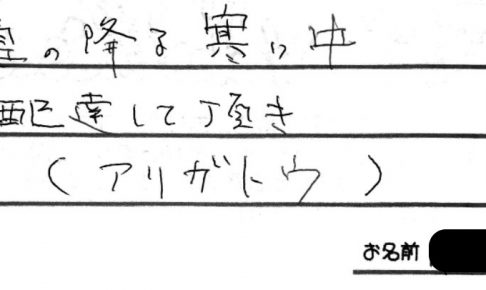 の降る寒い中
配達して頂き
（アリガトウ）
お名前